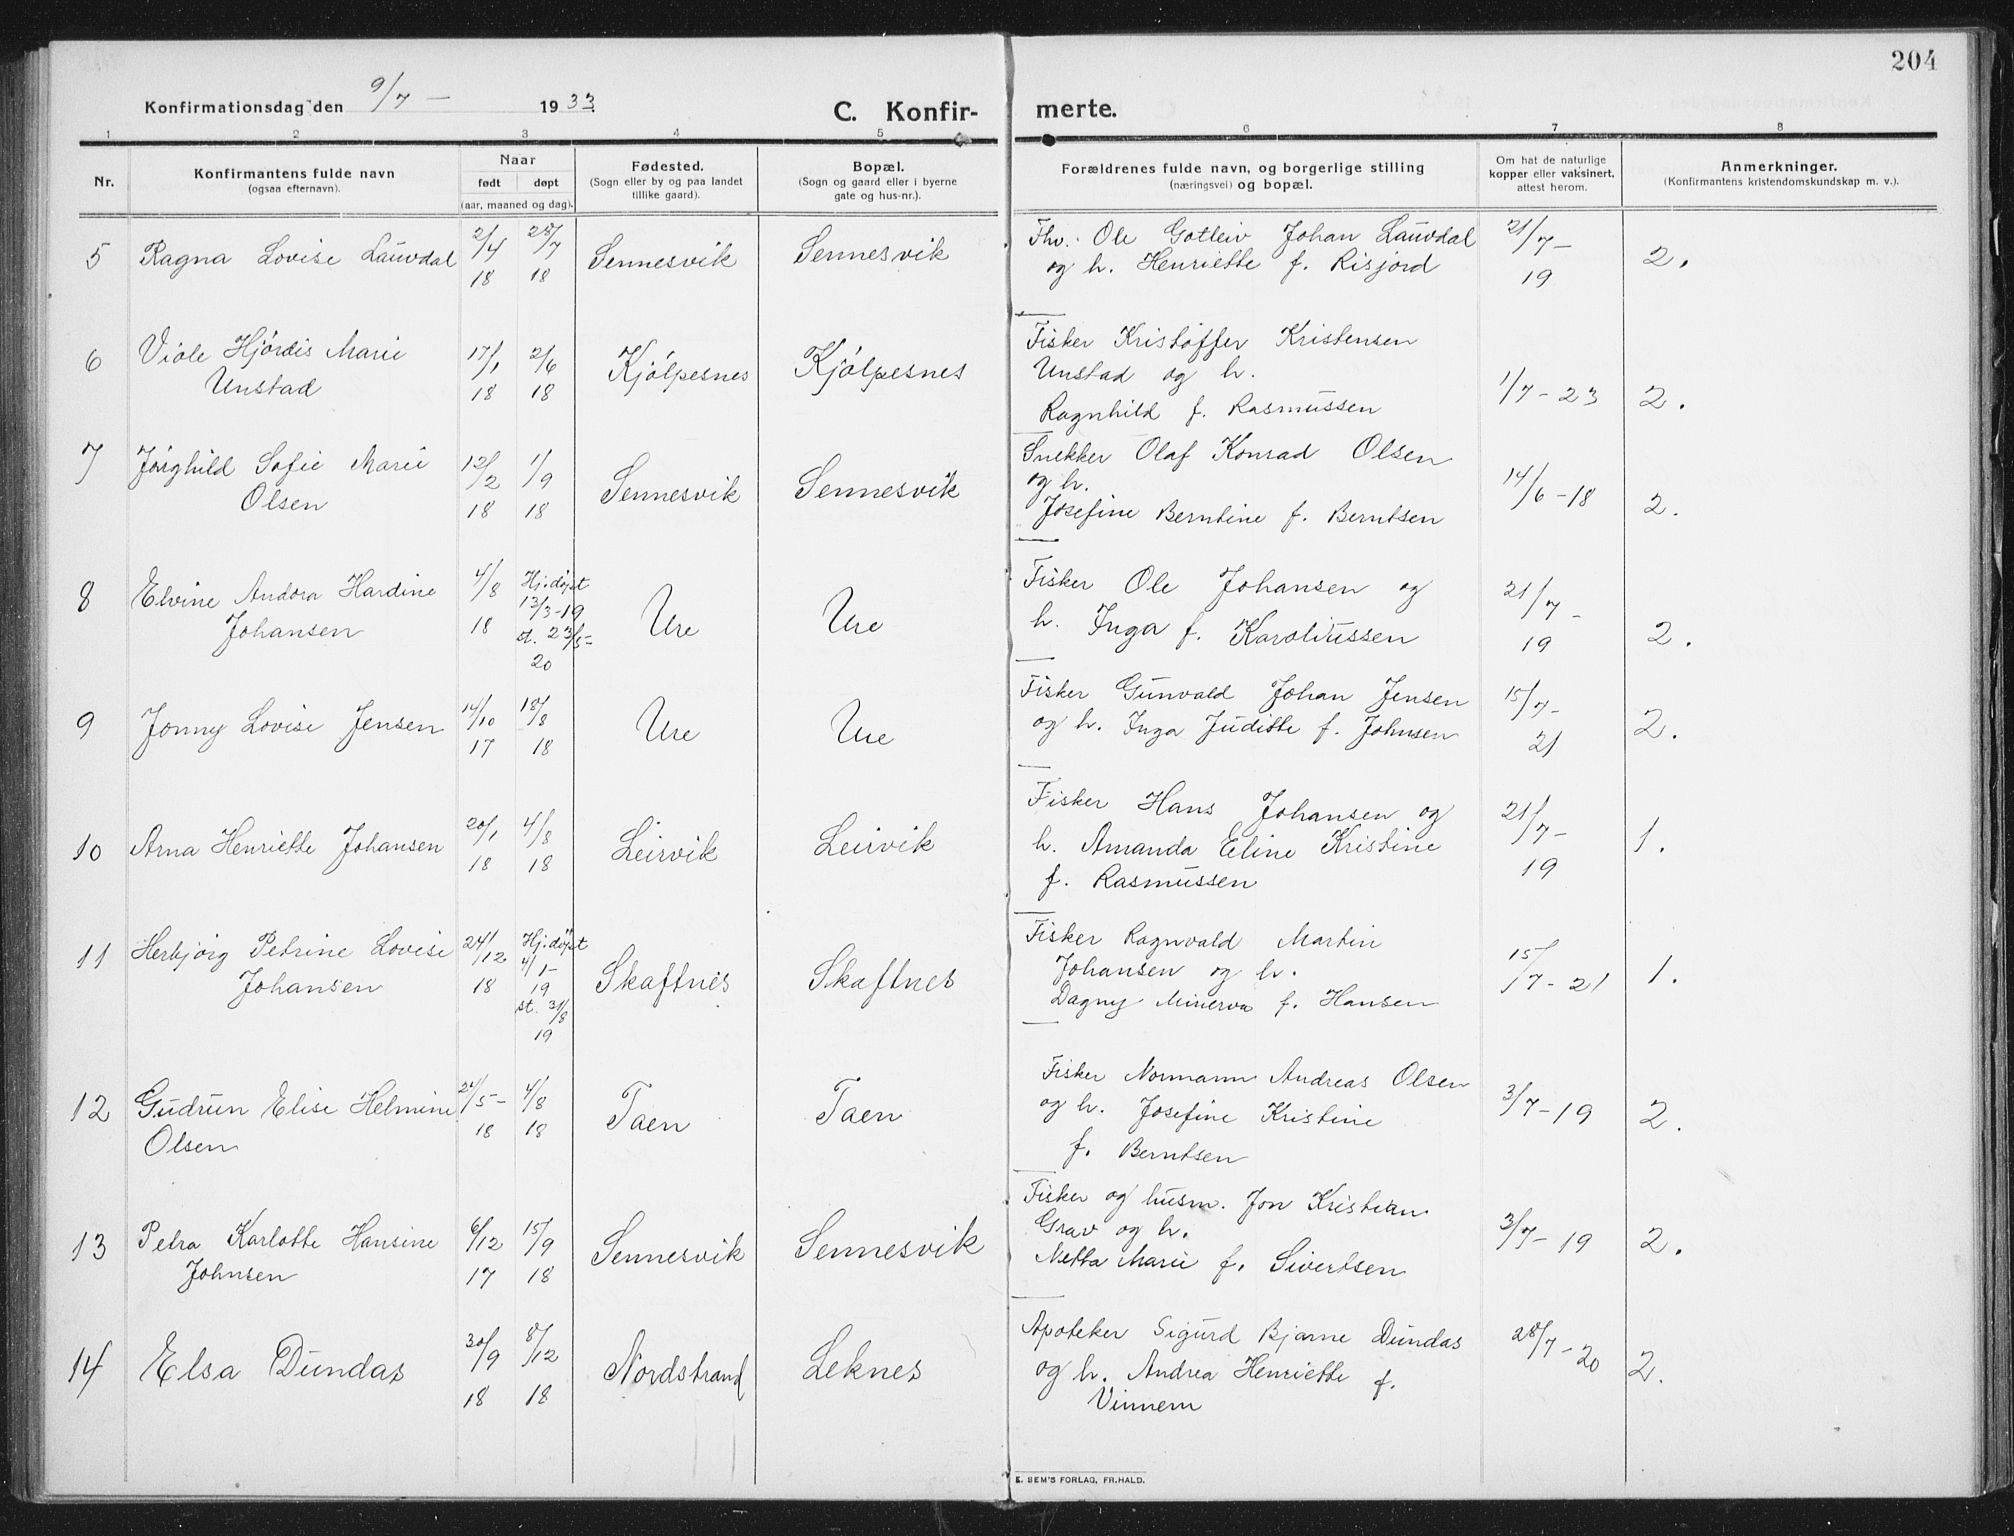 204
Konfirmationsdag den 9/7 - 1933.
C. Konfirmerte.
1 2 3 4 5 6 7 8
Nr.
Konfirmantens fulde navn
(ogsaa efternavn).
Naar
født døpt
(aar, maaned og dag).
Fødested.
(Sogn eller by og paa landet
tillike gaard).
Bopæl.
(Sogn og gaard eller i byerne
gate og hus-nr.).
Forældrenes fulde navn, og borgerlige stilling
(næringsvei) og bopæl.
Om hat de naturlige
kopper eller vaksinert,
attest herom.
Anmerkninger.
(Konfirmantens kristendomskundskap m. v.).
5 Ragna Lovise Lauvdal 2/4 18 28/7 18 Sennesvik Sennesvik
Fhv. Ole Gotleiv Johan Lauvdal
og h. Henriette f. Risjord
21/7 - 19 2.
6 Viole Hjördis Marie
Unstad
17/1 18 2/6 18 Kjölpesnes Kjölpesnes
Fisker Kristoffer Kristensen
Unstad og h.
Ragnhild f. Rasmussen
1/7 - 23 2.
7 Jörghild Sofie Marie
Olsen
12/2 18 1/9 18 Sennesvik Sennesvik
Snekker Olaf Konrad Olsen
og h.
Josefine Berntine f. Berntsen
14/6 - 18 2.
8 Elvine Andora Hardine
Johansen
4/8 18 Hj.döpt
13/3-19
st. 23/5-
20
Ure Ure
Fisker Ole Johansen og
h. Inga f. Karoliussen
21/7 - 19 2.
9 Jonny Lovise Jensen 14/10 17 18/8 18 Ure Ure
Fisker Gunvald Johan Jensen
og h. Inga Juditte f. Johnsen
15/7 - 21 2.
10 Arna Henriette Johansen 20/1 18 4/8 18 Leirvik Leirvik
Fisker Hans Johansen og
h. Amanda Eline Kristine
f. Rasmussen
21/7 - 19 1.
11 Herbjörg Petrine Lovise
Johansen
24/12 18 Hj.döpt
4/1-
19
st. 31/8
19
Skaftnes Skaftnes
Fisker Ragnvald Martin
Johansen og h.
Dagny Minerva f. Hansen
15/7 - 21 1.
12 Gudrun Elise Helmine
Olsen
24/5 - 18 4/8 18 Taen Taen
Fisker Normann Andreas Olsen
og h. Josefine Kristine
f. Berntsen
3/7 - 19 2.
13 Petra Karlotte Hansine
Johnsen
6/12 17 15/9 18 Sennesvik Sennesvik
Fisker og husm. Jon Kristian
Grav og h.
Netta Marie f. Sivertsen
3/7 - 19 2.
14 Elsa Dundas 30/9 18 8/12 18 Nordstrand Leknes
Apoteker Sigurd Bjarne Dundas
og h. Andrea Henriette f.
Vinnem
28/7 - 20 2.
E. SEM'S FORLAG, FR.HALD.